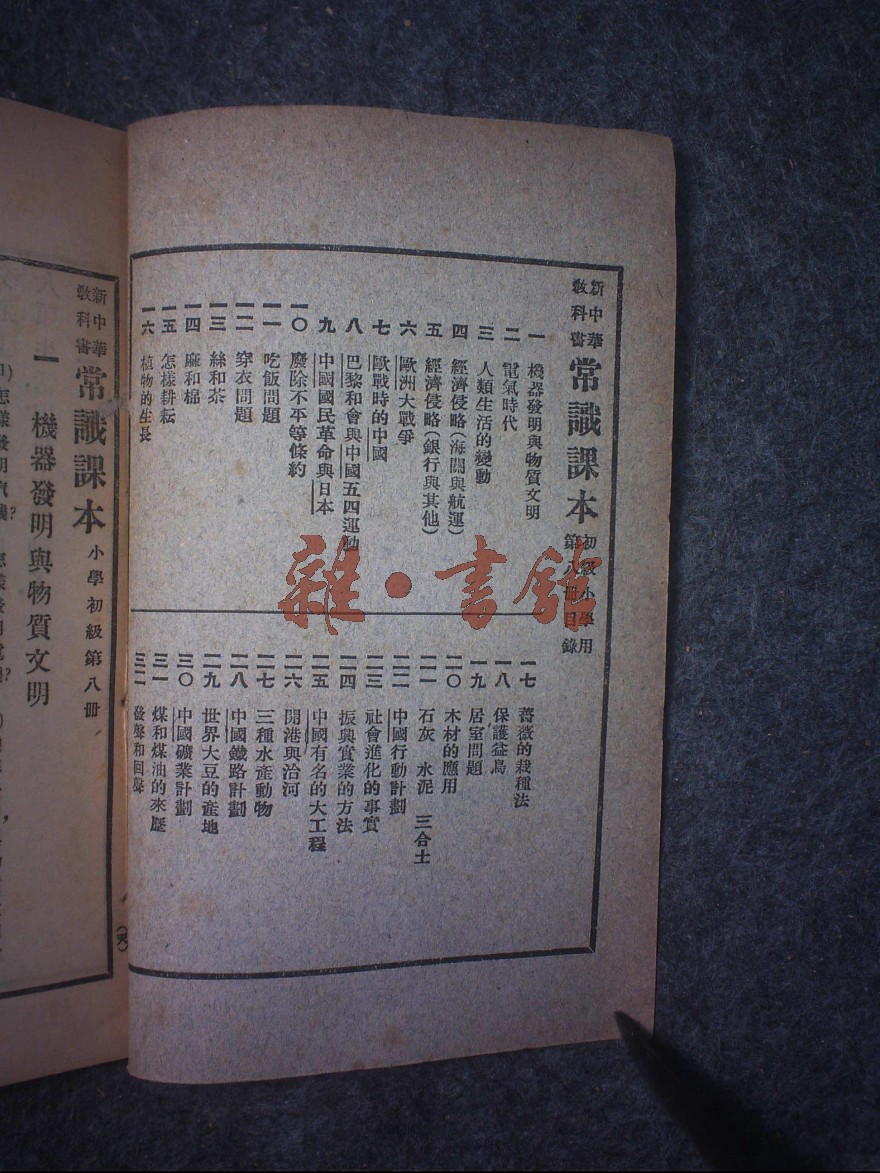 新中華
教科書
常識課本
初級小學用
第八冊目錄
一 機器發明與物質文明
二 電氣時代
三 人類生活的變動
四 經濟侵略(海關與航運)
五 經濟侵略(銀行與其他)
六 歐洲大戰爭
七 歐戰時的中國
八 巴黎和會與中國五四運動
九 中國國民革命與日本
一〇 廢除不平等條約
一一 吃飯問題
一二 穿衣問題
一三 絲和茶
一四 麻和棉
一五 怎樣耕耘
一六 植物的生長
一七 薔薇的栽種法
一八 保護益鳥
一九 居室問題
二〇 木材的應用
二一 石灰 水泥 三合土
二二 中國行動計劃
二三 社會進化的事實
二四 振興實業的方法
二五 中國有名的大工程
二六 開港與治河
二七 三種水產動物
二八 中國鐵路計劃
二九 世界大豆的產地
三〇 中國礦業計劃
三一 煤和煤油的來歷
三二 發聲和回聲
雜·書館
新中華
教科書
常識課本
小學初級第八冊
一 機器發明與物質文明